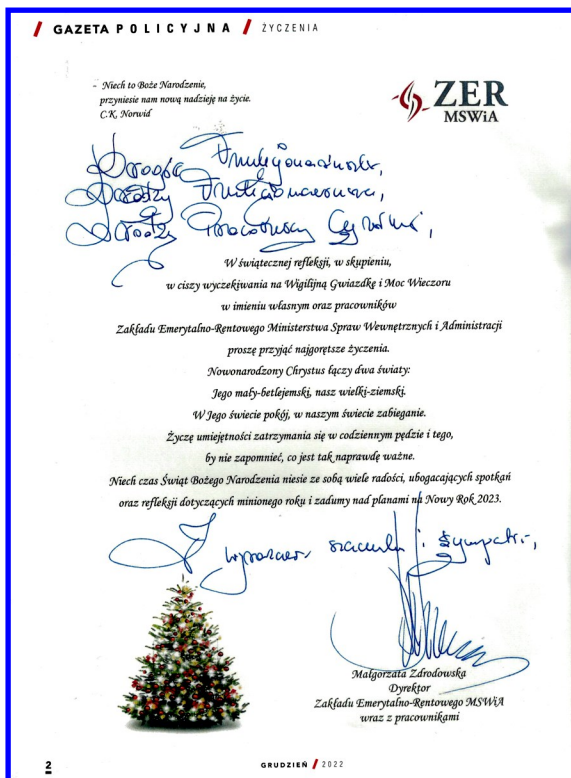 GAZETA POLICYJNA / ŻYCZENIA
- Niech to Boże Narodzenie,
przyniesie nam nową nadzieję na życie.
C.K. Norwid
ZER
MSWiA
Drodzy Pracownicy Cywilni,
W świątecznej refleksji, w skupieniu,
w ciszy wyczekiwania na Wigilijną Gwiazdkę i Moc Wieczoru
w imieniu własnym oraz pracowników
Zakładu Emerytalno-Rentowego Ministerstwa Spraw Wewnętrznych i Administracji
proszę przyjąć najgorętsze życzenia.
Nowonarodzony Chrystus łączy dwa światy:
Jego mały-betlejemski, nasz wielki-ziemski.
W Jego świecie pokój, w naszym świecie zabieganie.
Życzę umiejętności zatrzymania się w codziennym pędzie i tego,
by nie zapomnieć, co jest tak naprawdę ważne.
Niech czas Świąt Bożego Narodzenia niesie ze sobą wiele radości, ubogacających spotkań
oraz refleksji dotyczących minionego roku i zadumy nad planami na Nowy Rok 2023.
Z wyrazami szacunku i sympatii,
Małgorzata Zdrodowska
Dyrektor
Zakładu Emerytalno-Rentowego MSWiA
wraz z pracownikami
2
GRUDZIEŃ / 2022